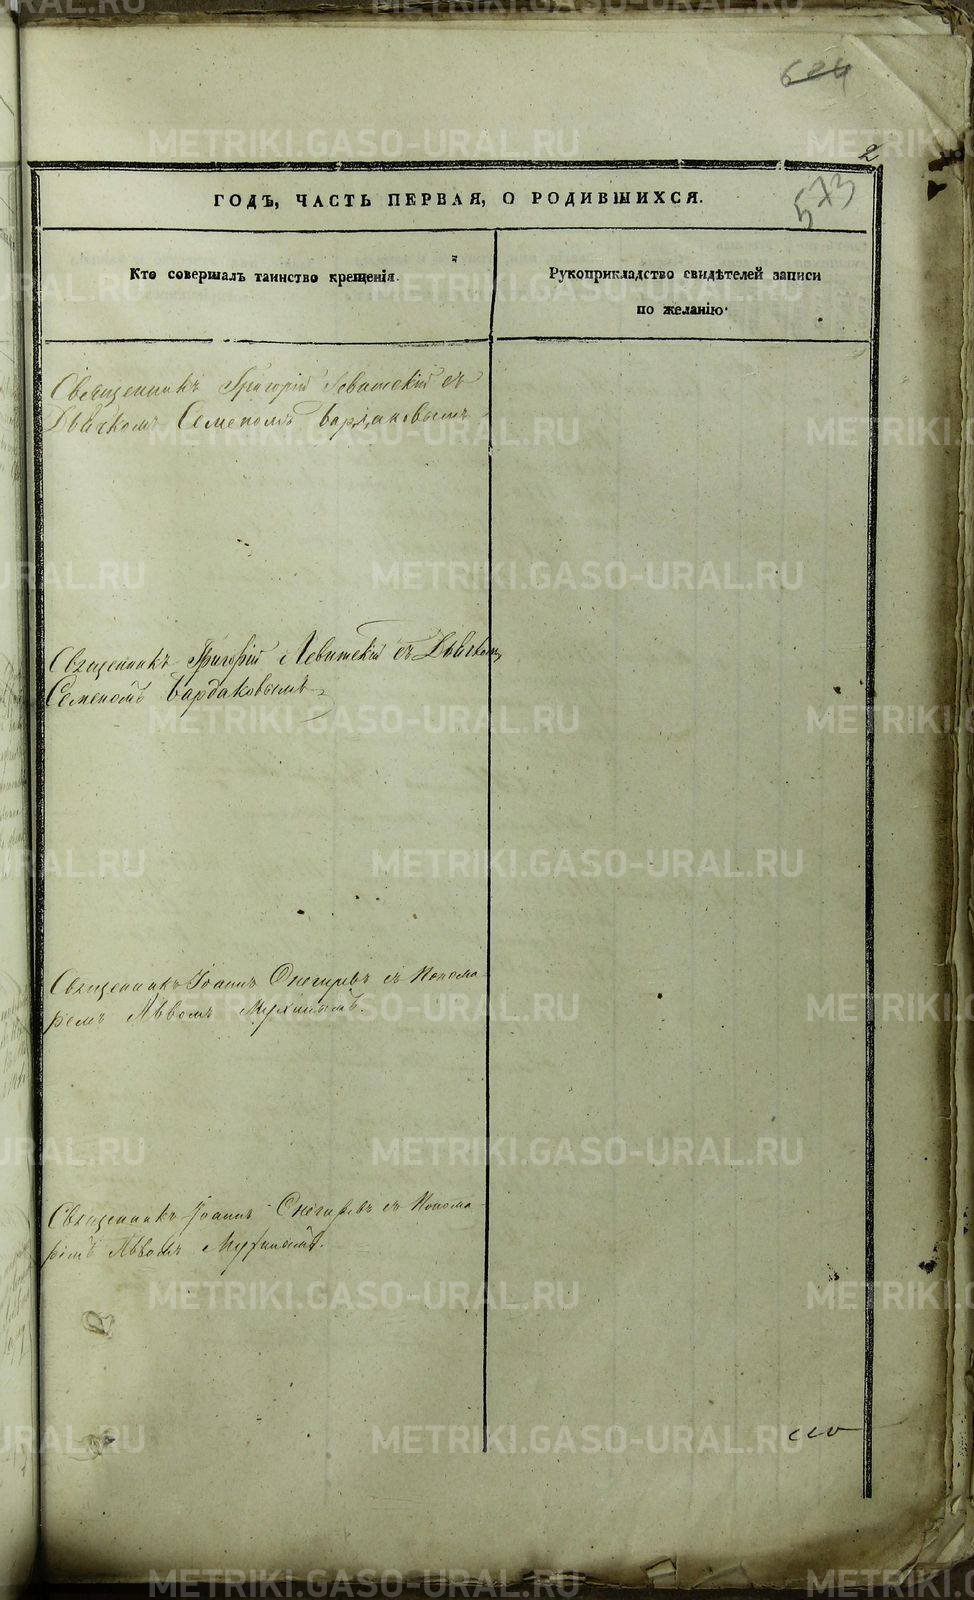 624
2
573
ГОДЪ, ЧАСТЬ ПЕРВАЯ, О РОДИВШИХСЯ.
Кто совершалъ таинство крещенія.
Рукоприкладство свидѣтелей записи
по желанію.
Священникъ Григорій Левитскій съ
Дьячкомъ Семеномъ Бардаковымъ
Священникъ Григорій Левитскій съ Дьячкомъ
Семеномъ Бардаковымъ
Священникъ Іоаннъ Снегиревъ съ Понома
ремъ Львомъ Мухинымъ.
Священникъ Іоаннъ Снегиревъ съ Понома
ремъ Львомъ Мухинымъ.
METRIKI.GASO-URAL.RU